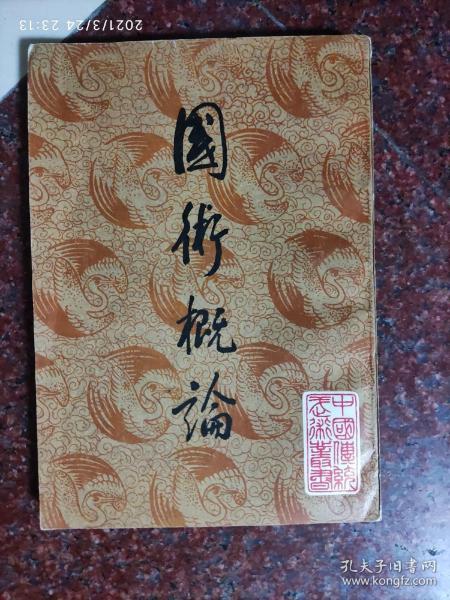 2021/3/24 23:13
國術概論
中國傳統
武術叢書
孔夫子旧书网
www.kongfz.com